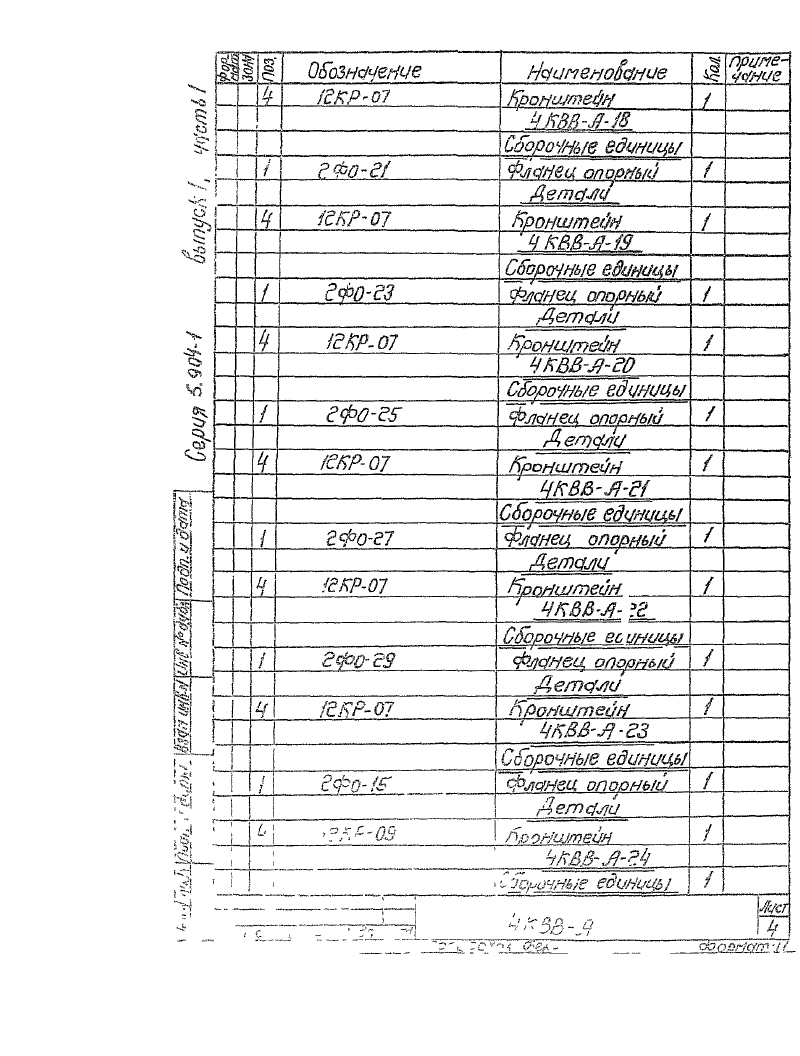 Серия 5.904-1 выпуск 1, часть 1
Формат Зона Поз. Обозначение Наименование Кол. Примечание
4 12КР-07 Кронштейн 1
4КВВ-А-18
Сборочные единицы
1 2ФО-21 Фланец опорный 1
Детали
4 12КР-07 Кронштейн 1
4КВВ-А-19
Сборочные единицы
1 2ФО-23 Фланец опорный 1
Детали
4 12КР-07 Кронштейн 1
4КВВ-А-20
Сборочные единицы
1 2ФО-25 Фланец опорный 1
Детали
4 12КР-07 Кронштейн 1
4КВВ-А-21
Сборочные единицы
1 2ФО-27 Фланец опорный 1
Детали
4 12КР-07 Кронштейн 1
4КВВ-А-22
Сборочные единицы
1 2ФО-29 Фланец опорный 1
Детали
4 12КР-07 Кронштейн 1
4КВВ-А-23
Сборочные единицы
1 2ФО-15 Фланец опорный 1
Детали
4 12КР-09 Кронштейн 1
4КВВ-А-24
Сборочные единицы 1
Подп. и дата
Инв. № дубл.
Взам. инв. №
4КВВ-А
Лист
4
Формат 11